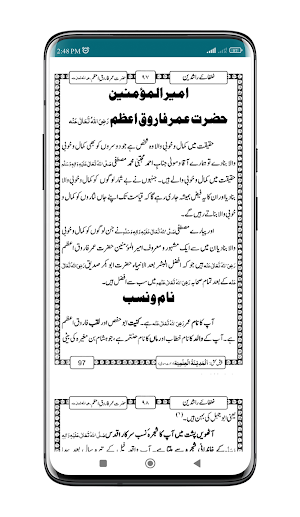 2:48 PM
خلفائے راشدین ۹۷ حضرت عمر فاروق اعظم
امیر المؤمنین
حضرت عمر فاروق اعظم رَضِیَ اللہُ تَعَالٰی عَنْہُ
حقیقت میں کمال و خوبی والا وہ شخص ہے جو دوسروں کو بھی کمال و خوبی
والا بنا دے تو ہمارے آقا و مولیٰ جناب احمد مجتبیٰ محمد مصطفی صَلَّی اللہُ تَعَالٰی عَلَیْہِ وَاٰلِہٖ وَسَلَّم
حقیقت میں کمال و خوبی والے ہیں۔ جنہوں نے بے شمار لوگوں کو کمال و خوبی
والا بنا دیا اور ان کا یہ فیض ہمیشہ جاری رہے گا کہ قیامت تک اپنے جاں نثاروں کو کمال و
خوبی والا بناتے رہیں گے۔
اور پیارے مصطفی صَلَّی اللہُ تَعَالٰی عَلَیْہِ وَاٰلِہٖ وَسَلَّم نے جن لوگوں کو کمال و خوبی
والا بنا دیا ان میں سے ایک مشہور و معروف امیر المؤمنین حضرت عمر فاروق اعظم
رَضِیَ اللہُ تَعَالٰی عَنْہُ ہیں جو کہ افضل البشر بعد الانبیاء حضرت ابوبکر صدیق رَضِیَ اللہُ تَعَالٰی
عَنْہُ کے بعد تمام صحابہ رَضِیَ اللہُ تَعَالٰی عَنْہُم میں سب سے افضل ہیں۔
نام و نسب
آپ کا نام عمر رَضِیَ اللہُ تَعَالٰی عَنْہُ ہے۔ کنیت ابو حفص اور لقب فاروق اعظم
ہے۔ آپ کے والد کا نام خطاب اور ماں کا نام عنتمہ ہے، جو ہشام بن مغیرہ کی بیٹی
97 المدینۃ العلمیۃ
خلفائے راشدین ۹۸ حضرت عمر فاروق اعظم
یعنی ابو جہل کی بہن ہیں۔ (۱)
آٹھویں پشت میں آپ کا شجرہ نسب سرکار اقدس صَلَّی اللہُ تَعَالٰی عَلَیْہِ وَاٰلِہٖ وَسَلَّم
کے خاندانی شجرہ سے ملتا ہے۔ آپ واقعہ فیل کے تیرہ سال بعد پیدا